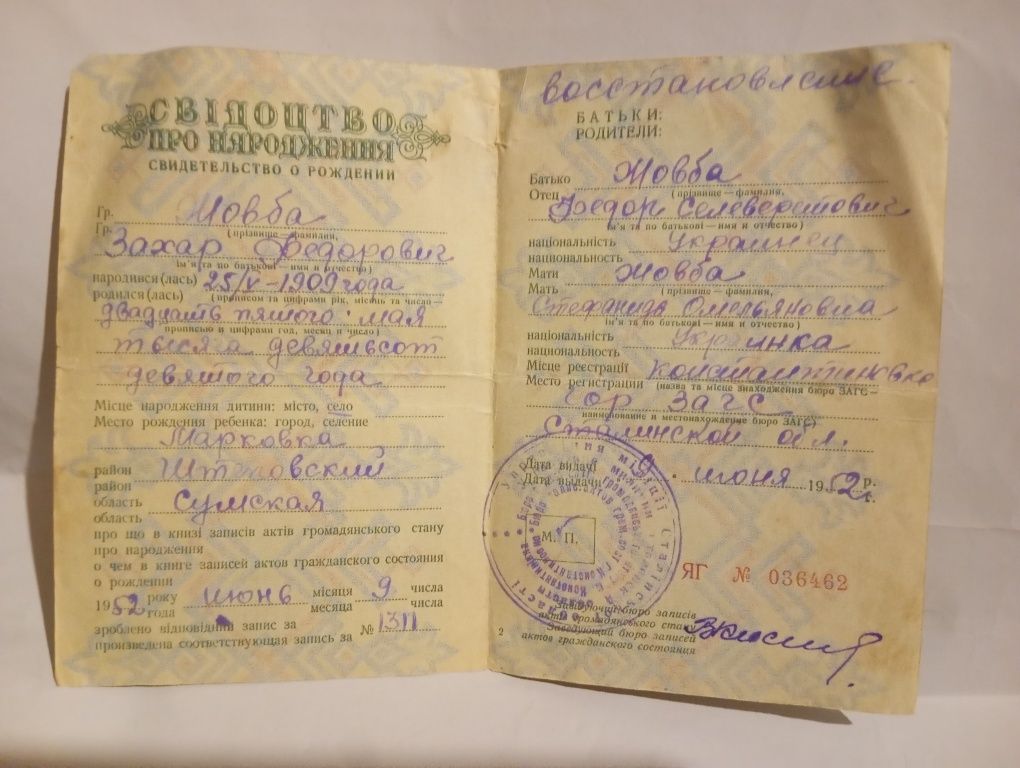 СВІДОЦТВО
ПРО НАРОДЖЕННЯ
СВИДЕТЕЛЬСТВО О РОЖДЕНИИ
Гр. Жовба
Гр. (прізвище — фамилия,
Захар Федорович
ім'я та по батькові — имя и отчество)
народився(лась) 25/V – 1909 года
родился(лась) (прописом та цифрами рік, місяць та число —
двадцать пятого мая
прописью и цифрами год, месяц и число)
тысяча девятьсот
девятого года
Місце народження дитини: місто, село
Место рождения ребенка: город, селение
Марковка
район Штеповский
район
область Сумская
область
про що в книзі записів актів громадянського стану
про народження
о чем в книге записей актов гражданского состояния
о рождении
1952 року июнь місяця 9 числа
года месяца числа
зроблено відповідний запис за
произведена соответствующая запись за № 13П
восстановление.
БАТЬКИ:
РОДИТЕЛИ:
Батько Жовба
Отец (прізвище — фамилия,
Федор Селеверстович
ім'я та по батькові — имя и отчество)
національність Украинец
национальность
Мати Жовба
Мать (прізвище — фамилия,
Стефанида Омельяновна
ім'я та по батькові — имя и отчество)
національність Украинка
национальность
Місце реєстрації Константиновко
Место регистрации (назва та місце знаходження бюро ЗАГС —
гор ЗАГС
наименование и местонахождение бюро ЗАГС)
Сталинской обл.
Дата видачі 9 июня 1952 р.
Дата выдачи г.
М. П.
ЯГ № 036462
Завідуючий бюро записів
актів громадянського стану
Заведующий бюро записей
актов гражданского состояния
2